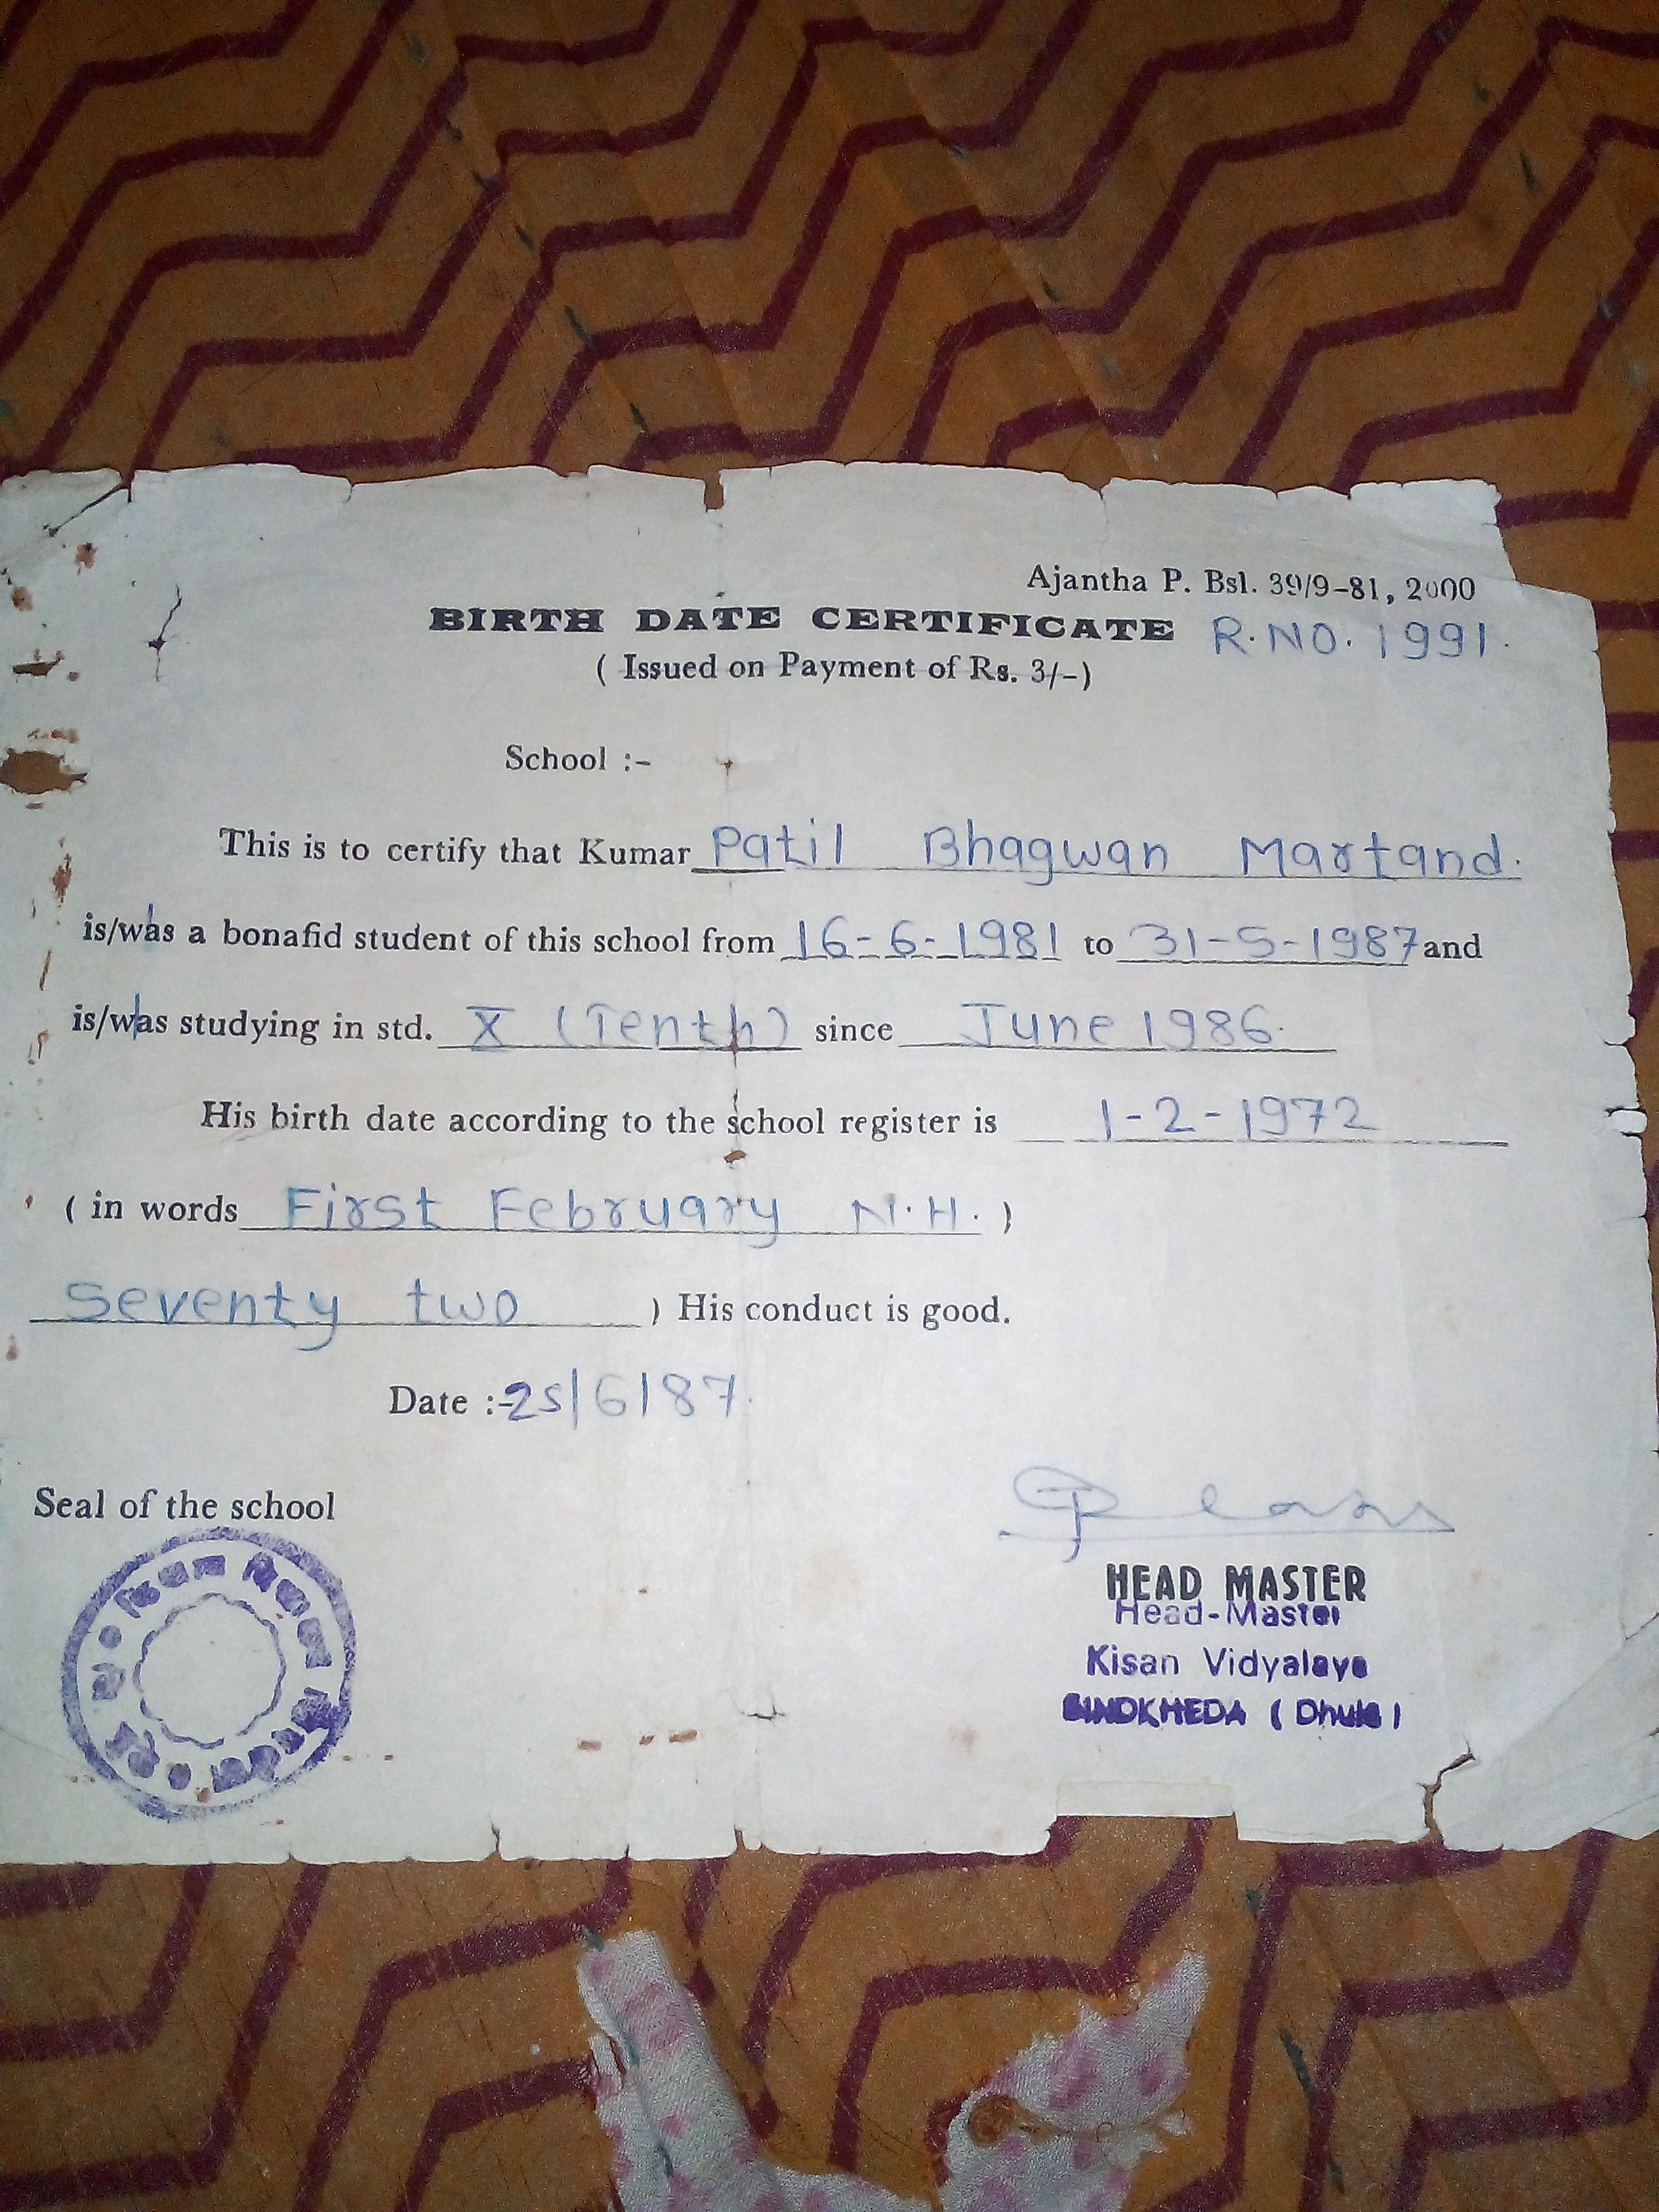 Ajantha P. Bsl. 39/9-81, 2000
BIRTH DATE CERTIFICATE R.NO. 1991.
( Issued on Payment of Rs. 3/-)
School :-
This is to certify that Kumar Patil Bhagwan Martand.
is/was a bonafid student of this school from 16-6-1981 to 31-5-1987 and
is/was studying in std. X (Tenth) since June 1986.
His birth date according to the school register is 1-2-1972
( in words First February N.H. )
Seventy two ) His conduct is good.
Date :- 25/6/87.
Seal of the school
HEAD MASTER
Head-Master
Kisan Vidyalaya
SINDKHEDA ( Dhule )